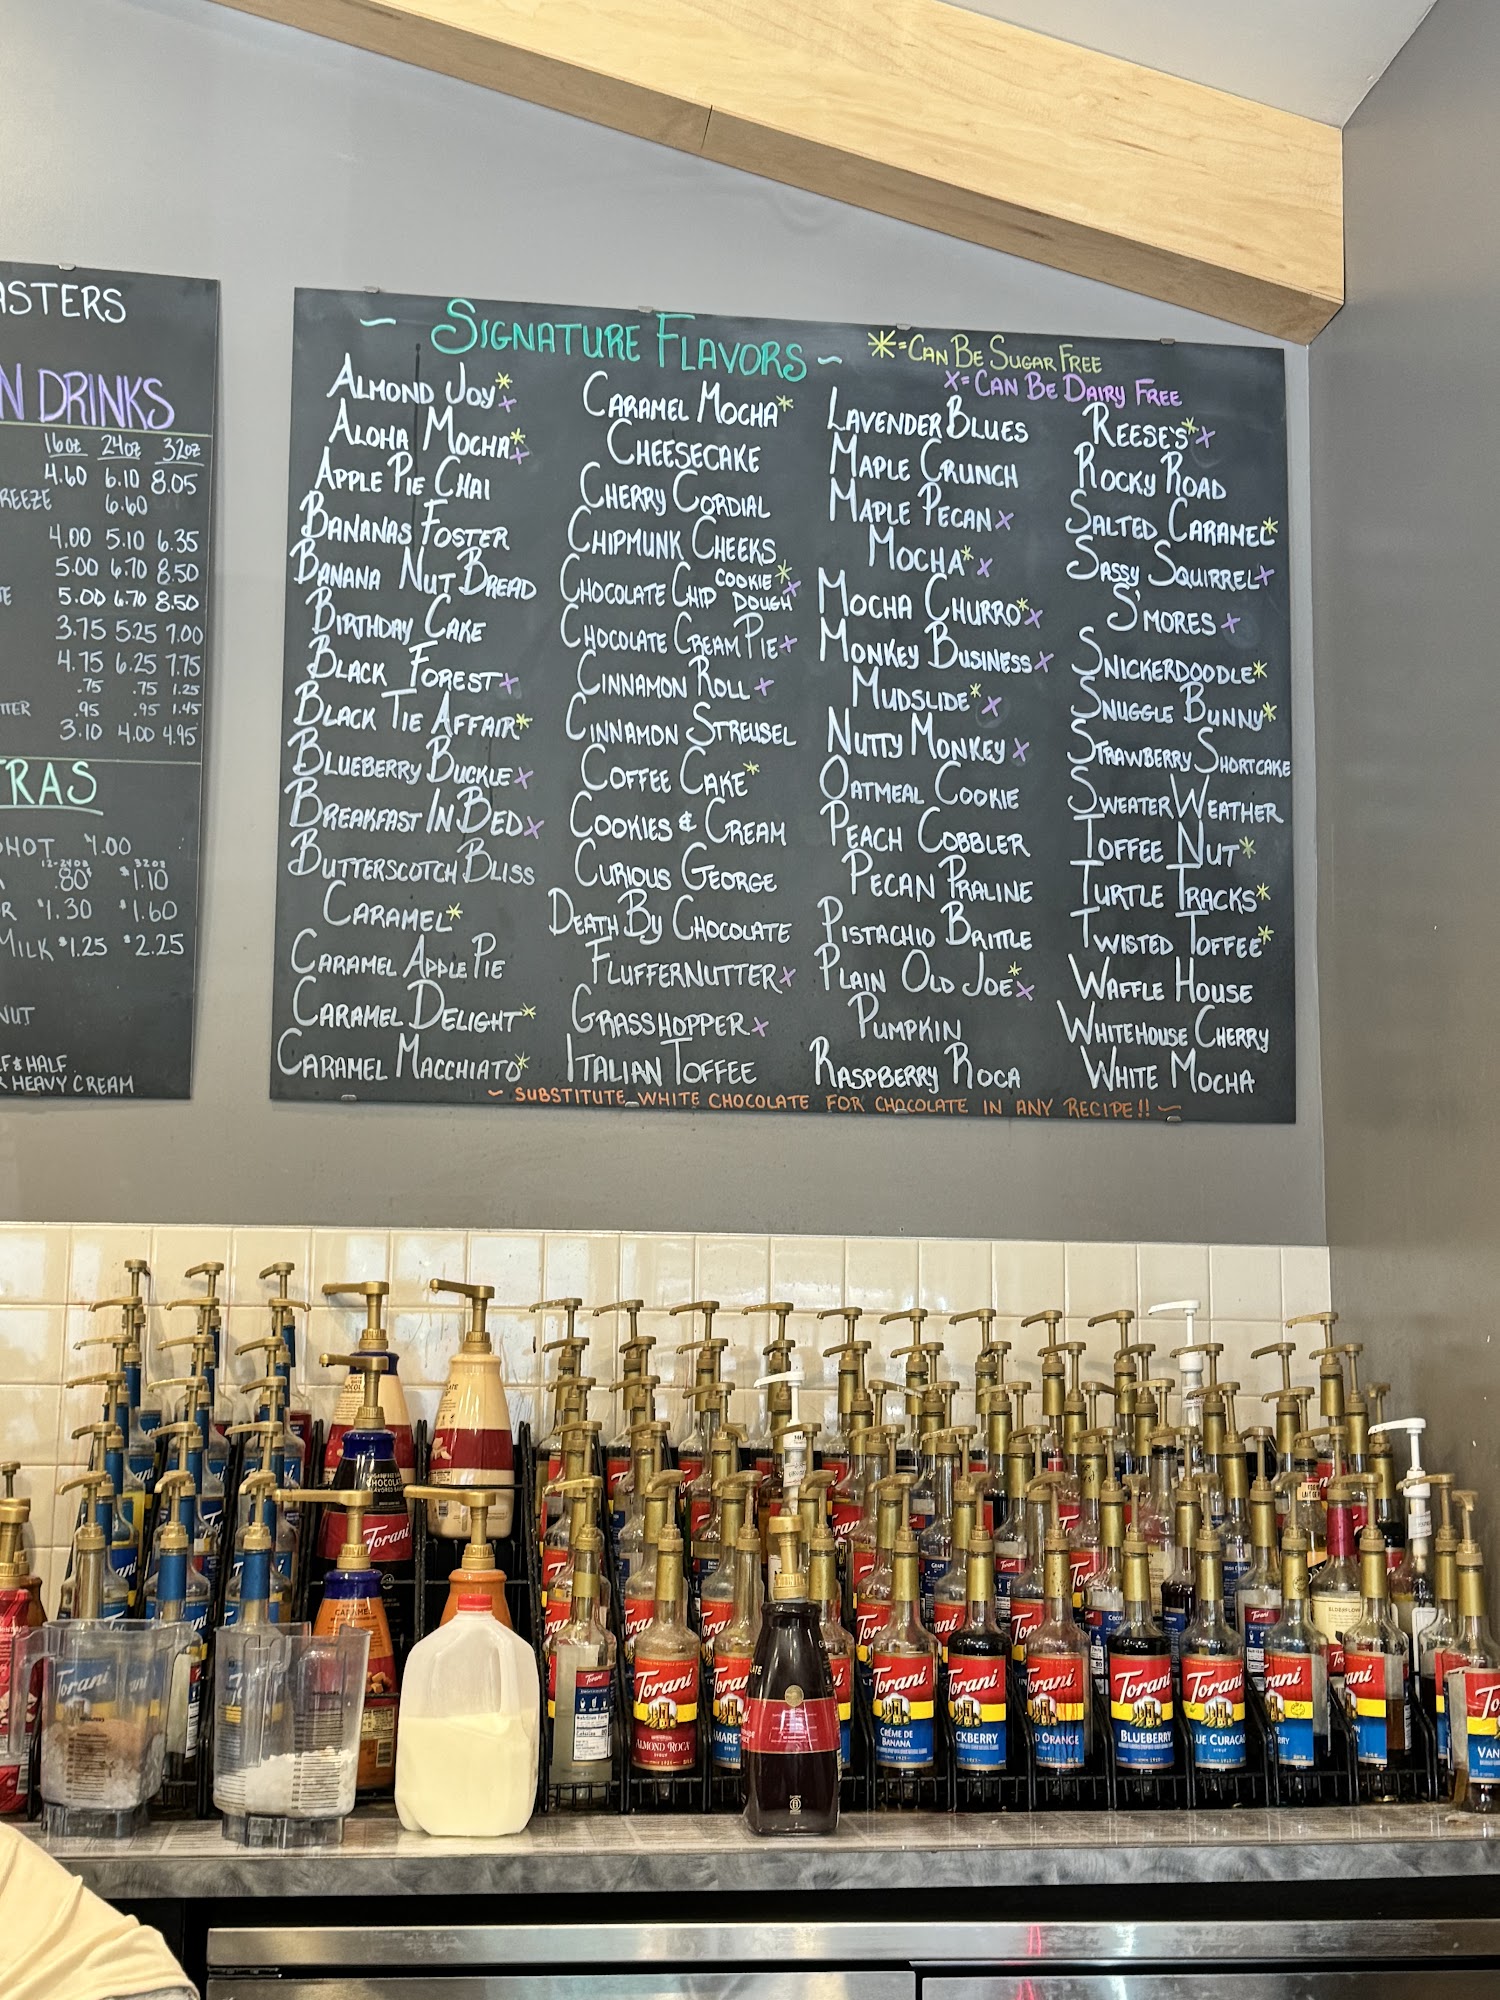 ASTERS
N DRINKS
16oz 24oz 32oz
4.60 6.10 8.05
REEZE 6.60
4.00 5.10 6.35
5.00 6.70 8.50
TE 5.00 6.70 8.50
3.75 5.25 7.00
4.75 6.25 7.75
.75 .75 1.25
TTER .95 .95 1.45
3.10 4.00 4.95
TRAS
SHOT
12-24oz 32oz
.80¢ $1.10
R $1.30 $1.60
MILK $1.25 $2.25
NUT
LF & HALF
R HEAVY CREAM
~ SIGNATURE FLAVORS ~
*=CAN BE SUGAR FREE
X=CAN BE DAIRY FREE
ALMOND JOY*X
ALOHA MOCHA*X
APPLE PIE CHAI
BANANAS FOSTER
BANANA NUT BREAD
BIRTHDAY CAKE
BLACK FOREST X
BLACK TIE AFFAIR*
BLUEBERRY BUCKLE X
BREAKFAST IN BED X
BUTTERSCOTCH BLISS
CARAMEL*
CARAMEL APPLE PIE
CARAMEL DELIGHT*
CARAMEL MACCHIATO*
CARAMEL MOCHA*
CHEESECAKE
CHERRY CORDIAL
CHIPMUNK CHEEKS
CHOCOLATE CHIP COOKIE DOUGH*X
CHOCOLATE CREAM PIE X
CINNAMON ROLL X
CINNAMON STREUSEL
COFFEE CAKE*
COOKIES & CREAM
CURIOUS GEORGE
DEATH BY CHOCOLATE
FLUFFERNUTTER X
GRASSHOPPER X
ITALIAN TOFFEE
LAVENDER BLUES
MAPLE CRUNCH
MAPLE PECAN X
MOCHA*X
MOCHA CHURRO*X
MONKEY BUSINESS X
MUDSLIDE*X
NUTTY MONKEY X
OATMEAL COOKIE
PEACH COBBLER
PECAN PRALINE
PISTACHIO BRITTLE
PLAIN OLD JOE*X
PUMPKIN
RASPBERRY ROCA
REESE'S*X
ROCKY ROAD
SALTED CARAMEL*
SASSY SQUIRREL X
S'MORES X
SNICKERDOODLE*
SNUGGLE BUNNY*
STRAWBERRY SHORTCAKE
SWEATER WEATHER
TOFFEE NUT*
TURTLE TRACKS*
TWISTED TOFFEE*
WAFFLE HOUSE
WHITEHOUSE CHERRY
WHITE MOCHA
~ SUBSTITUTE WHITE CHOCOLATE FOR CHOCOLATE IN ANY RECIPE!! ~
Torani
CARAMEL
Torani
Torani
ALMOND ROCA
SYRUP
Torani
AMARET
Torani
CRÈME DE
BANANA
Torani
CKBERRY
Torani
D ORANGE
Torani
BLUEBERRY
Torani
UE CURAÇAO
Torani
RRY
Torani
Torani
VAN